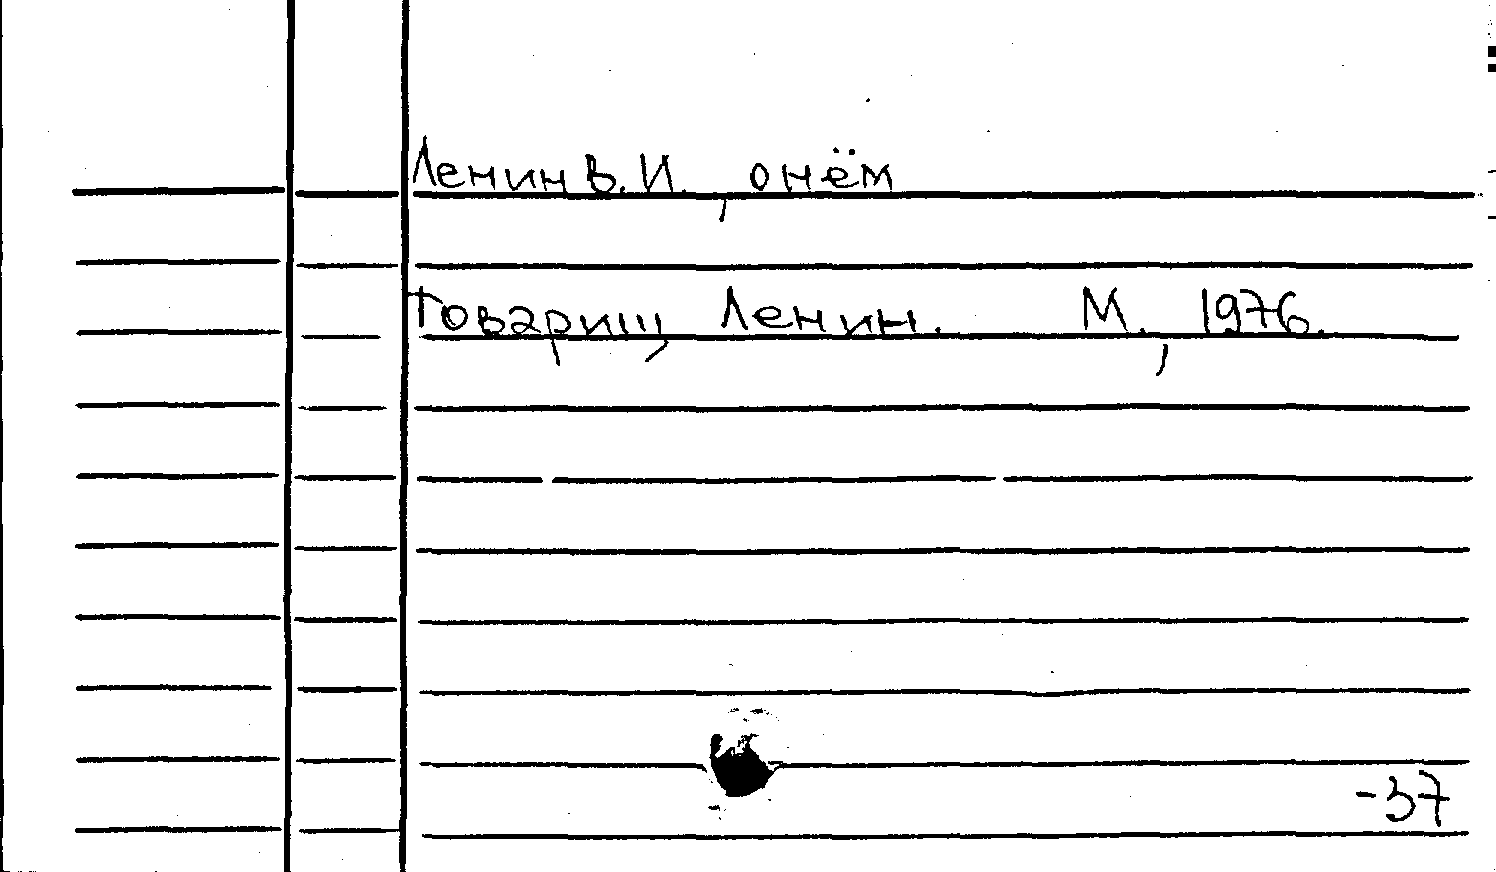 Ленин В.И., о нём
Товарищ Ленин. М., 1976.
-37